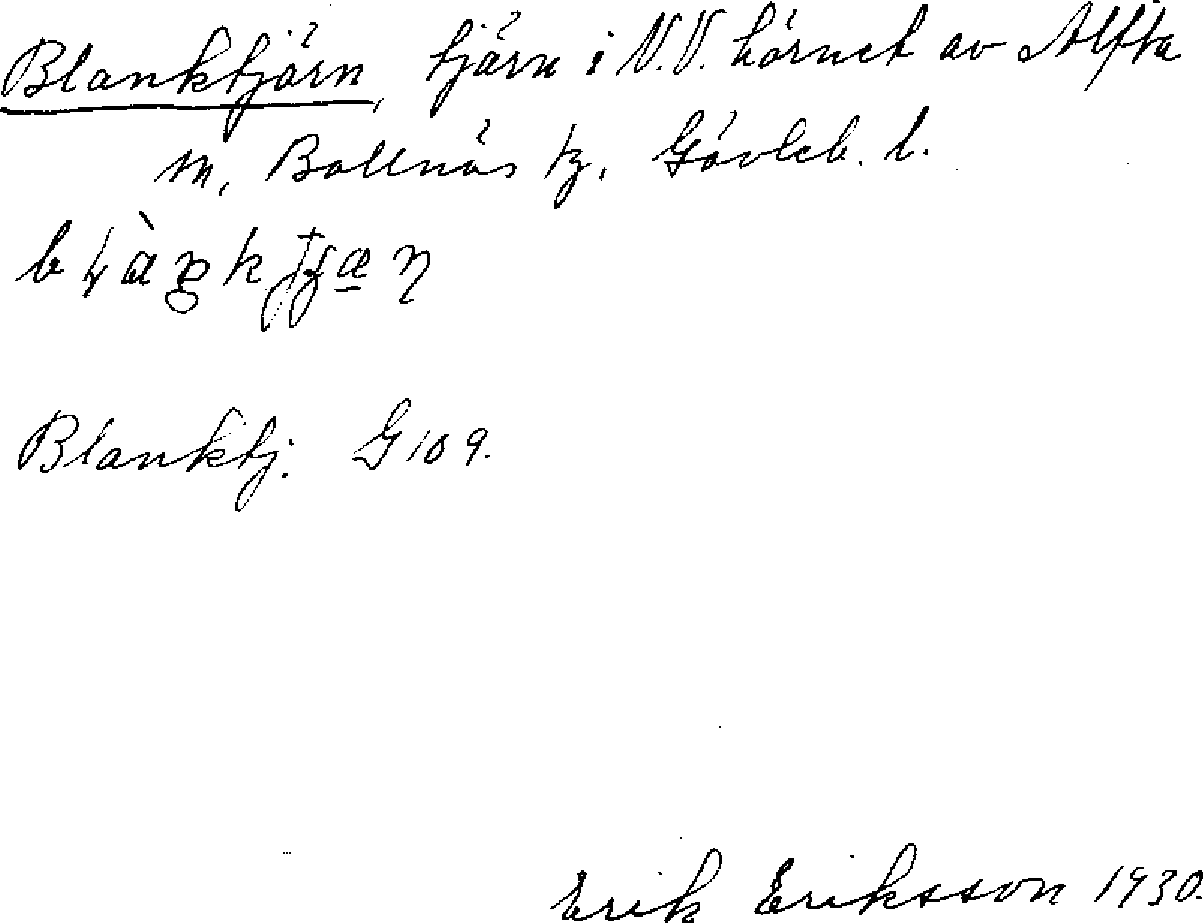 Blanktjärn, tjärn i N.V. hörnet av Alfta
sn, Bollnäs tg, Gävleb. l.
Blanktj. G 109.
Erik Eriksson 1930.